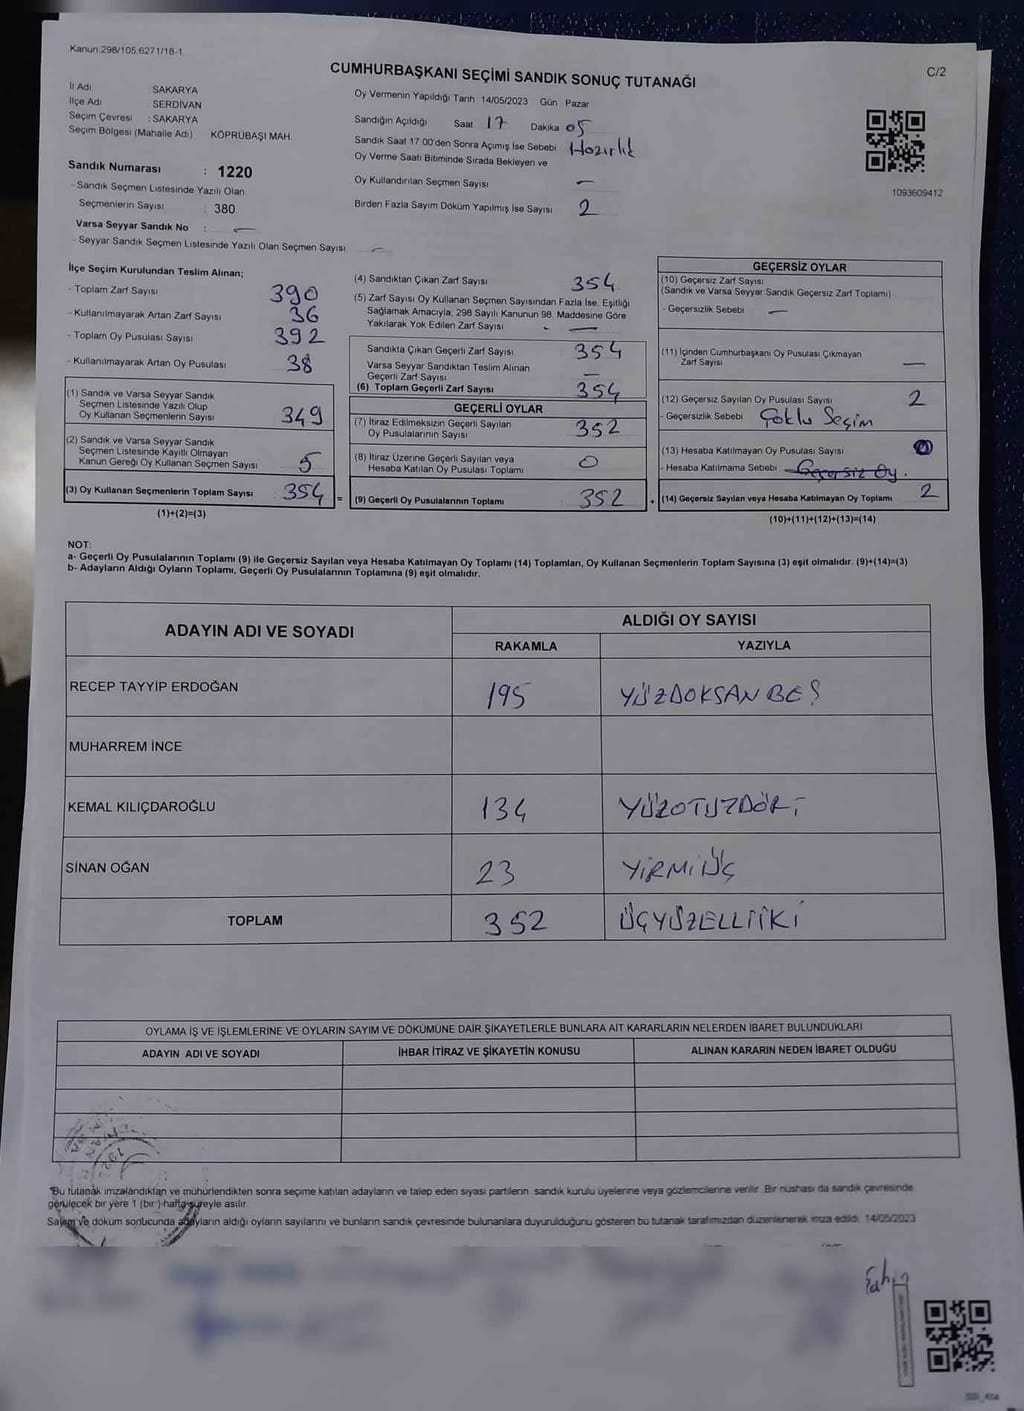 Kanun:298/105,6271/18-1
CUMHURBAŞKANI SEÇİMİ SANDIK SONUÇ TUTANAĞI
C/2
İl Adı SAKARYA
İlçe Adı SERDİVAN
Seçim Çevresi : SAKARYA
Seçim Bölgesi (Mahalle Adı) KÖPRÜBAŞI MAH.
Oy Vermenin Yapıldığı Tarih 14/05/2023 Gün Pazar
Sandığın Açıldığı Saat 17 Dakika 05
Sandık Saat 17:00'den Sonra Açımış İse Sebebi Hazırlık
Oy Verme Saati Bitiminde Sırada Bekleyen ve
Oy Kullandırılan Seçmen Sayısı —
Birden Fazla Sayım Döküm Yapılmış İse Sayısı 2
1093609412
Sandık Numarası : 1220
- Sandık Seçmen Listesinde Yazılı Olan
Seçmenlerin Sayısı : 380
Varsa Seyyar Sandık No : —
- Seyyar Sandık Seçmen Listesinde Yazılı Olan Seçmen Sayısı —
İlçe Seçim Kurulundan Teslim Alınan;
- Toplam Zarf Sayısı 390
- Kullanılmayarak Artan Zarf Sayısı 36
- Toplam Oy Pusulası Sayısı 392
- Kullanılmayarak Artan Oy Pusulası 38
(1) Sandık ve Varsa Seyyar Sandık
Seçmen Listesinde Yazılı Olup
Oy Kullanan Seçmenlerin Sayısı 349
(2) Sandık ve Varsa Seyyar Sandık
Seçmen Listesinde Kayıtlı Olmayan
Kanun Gereği Oy Kullanan Seçmen Sayısı 5
(3) Oy Kullanan Seçmenlerin Toplam Sayısı 354 =
(1)+(2)=(3)
(4) Sandıktan Çıkan Zarf Sayısı 354
(5) Zarf Sayısı Oy Kullanan Seçmen Sayısından Fazla İse, Eşitliği
Sağlamak Amacıyla, 298 Sayılı Kanunun 98. Maddesine Göre
Yakılarak Yok Edilen Zarf Sayısı —
Sandıkta Çıkan Geçerli Zarf Sayısı 354
Varsa Seyyar Sandıktan Teslim Alınan
Geçerli Zarf Sayısı —
(6) Toplam Geçerli Zarf Sayısı 354
GEÇERLİ OYLAR
(7) İtiraz Edilmeksizin Geçerli Sayılan
Oy Pusulalarının Sayısı 352
(8) İtiraz Üzerine Geçerli Sayılan veya
Hesaba Katılan Oy Pusulası Toplamı 0
(9) Geçerli Oy Pusulalarının Toplamı : 352 +
GEÇERSİZ OYLAR
(10) Geçersiz Zarf Sayısı
(Sandık ve Varsa Seyyar Sandık Geçersiz Zarf Toplamı)
- Geçersizlik Sebebi —
(11) İçinden Cumhurbaşkanı Oy Pusulası Çıkmayan
Zarf Sayısı —
(12) Geçersiz Sayılan Oy Pusulası Sayısı 2
- Geçersizlik Sebebi Çoklu Seçim
(13) Hesaba Katılmayan Oy Pusulası Sayısı
- Hesaba Katılmama Sebebi Geçersiz Oy.
(14) Geçersiz Sayılan veya Hesaba Katılmayan Oy Toplamı 2
(10)+(11)+(12)+(13)=(14)
NOT:
a- Geçerli Oy Pusulalarının Toplamı (9) ile Geçersiz Sayılan veya Hesaba Katılmayan Oy Toplamı (14) Toplamları, Oy Kullanan Seçmenlerin Toplam Sayısına (3) eşit olmalıdır. (9)+(14)=(3)
b- Adayların Aldığı Oyların Toplamı, Geçerli Oy Pusulalarının Toplamına (9) eşit olmalıdır.
ADAYIN ADI VE SOYADI
ALDIĞI OY SAYISI
RAKAMLA YAZIYLA
RECEP TAYYİP ERDOĞAN 195 YÜZDOKSANBEŞ
MUHARREM İNCE
KEMAL KILIÇDAROĞLU 134 YÜZOTUZDÖRT
SİNAN OĞAN 23 YİRMİÜÇ
TOPLAM 352 ÜÇYÜZELLİİKİ
OYLAMA İŞ VE İŞLEMLERİNE VE OYLARIN SAYIM VE DÖKÜMÜNE DAİR ŞİKAYETLERLE BUNLARA AİT KARARLARIN NELERDEN İBARET BULUNDUKLARI
ADAYIN ADI VE SOYADI İHBAR İTİRAZ VE ŞİKAYETİN KONUSU ALINAN KARARIN NEDEN İBARET OLDUĞU
"Bu tutanak imzalandıktan ve mühürlendikten sonra seçime katılan adayların ve talep eden siyasi partilerin sandık kurulu üyelerine veya gözlemcilerine verilir. Bir nüshası da sandık çevresinde
görülecek bir yere 1 (bir) hafta süreyle asılır.
Sayım ve döküm sonucunda adayların aldığı oyların sayılarını ve bunların sandık çevresinde bulunanlara duyurulduğunu gösteren bu tutanak tarafımızdan düzenlenerek imza edildi. 14/05/2023